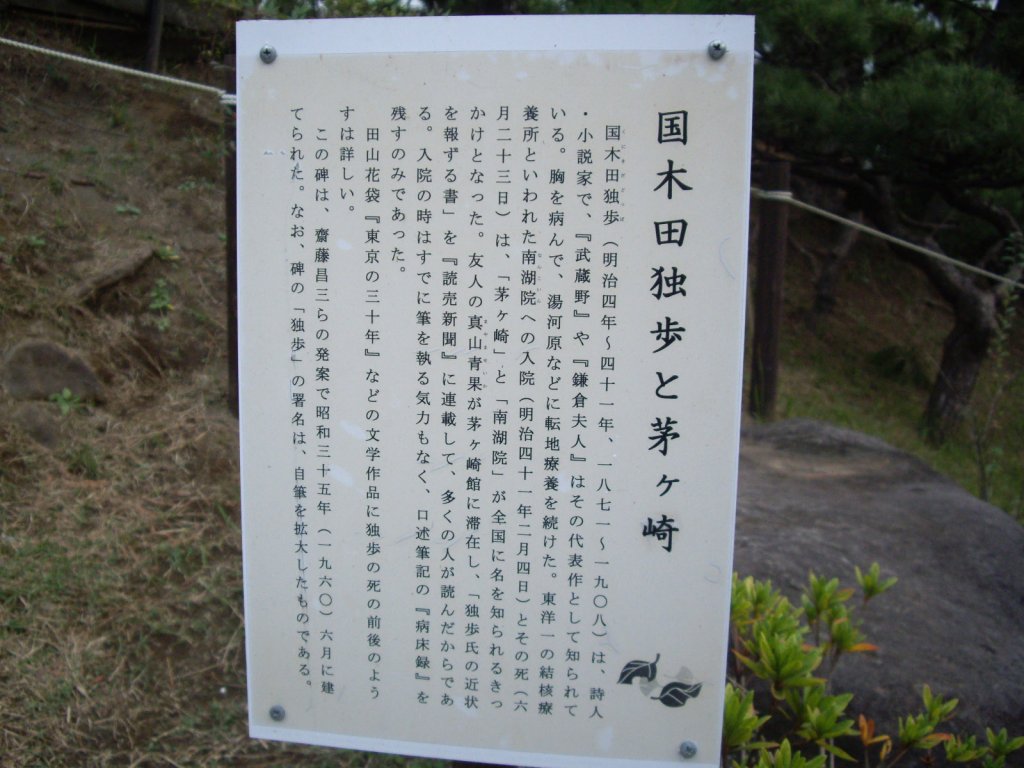 国木田独歩と茅ヶ崎
国木田独歩（明治四年～四十一年、一八七一～一九〇八）は、詩人
・小説家で、『武蔵野』や『鎌倉夫人』はその代表作として知られて
いる。胸を病んで、湯河原などに転地療養を続けた。東洋一の結核療
養所といわれた南湖院への入院（明治四十一年二月四日）とその死（六
月二十三日）は、「茅ヶ崎」と「南湖院」が全国に名を知られるきっ
かけとなった。友人の真山青果が茅ヶ崎館に滞在し、「独歩氏の近状
を報ずる書」を『読売新聞』に連載して、多くの人が読んだからであ
る。入院の時はすでに筆を執る気力もなく、口述筆記の『病床録』を
残すのみであった。
田山花袋『東京の三十年』などの文学作品に独歩の死の前後のよう
すは詳しい。
この碑は、齋藤昌三らの発案で昭和三十五年（一九六〇）六月に建
てられた。なお、碑の「独歩」の署名は、自筆を拡大したものである。